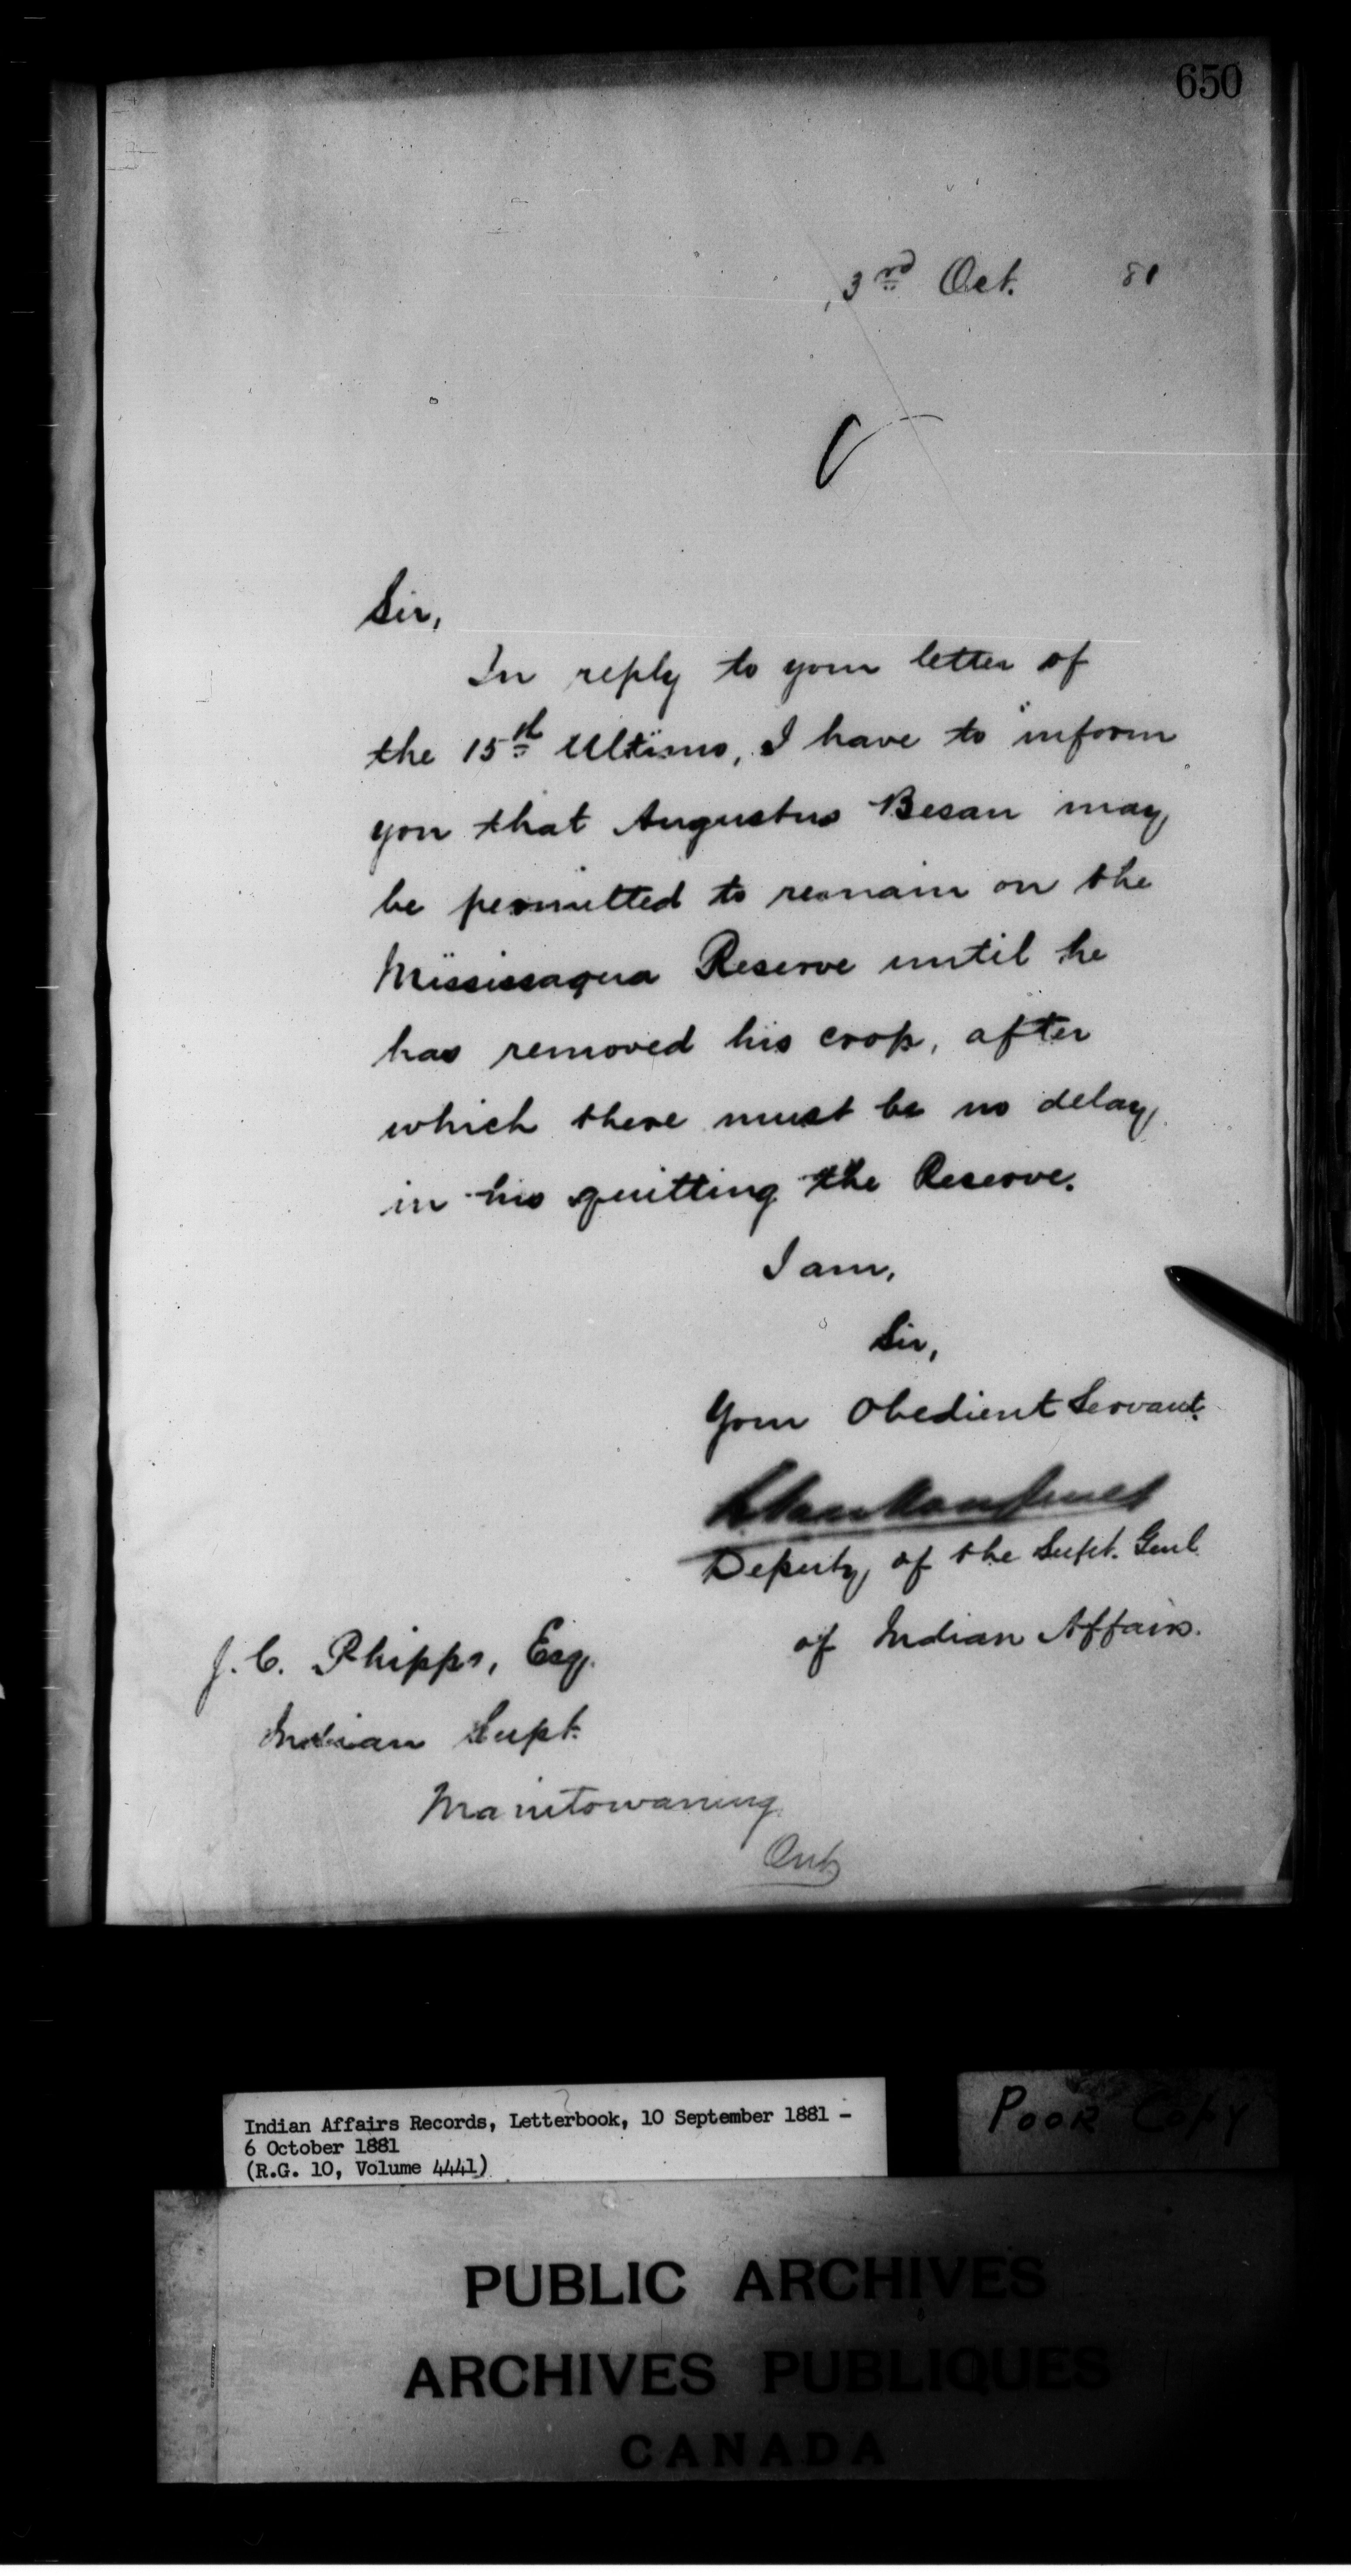 650
3rd Oct. 81
Sir,
In reply to your letter of
the 15th Ultimo, I have to inform
you that Augustus Besan may
be permitted to remain on the
Mississagua Reserve until he
has removed his crop, after
which there must be no delay
in his quitting the Reserve.
I am,
Sir,
Your Obedient Servant.
Deputy of the Supt. Genl
of Indian Affairs.
J. C. Phipps, Esq.
Indian Supt.
Manitowaning
Ont.
Indian Affairs Records, Letterbook, 10 September 1881 -
6 October 1881
(R.G. 10, Volume 4441)
POOR COPY
PUBLIC ARCHIVES
ARCHIVES PUBLIQUES
CANADA